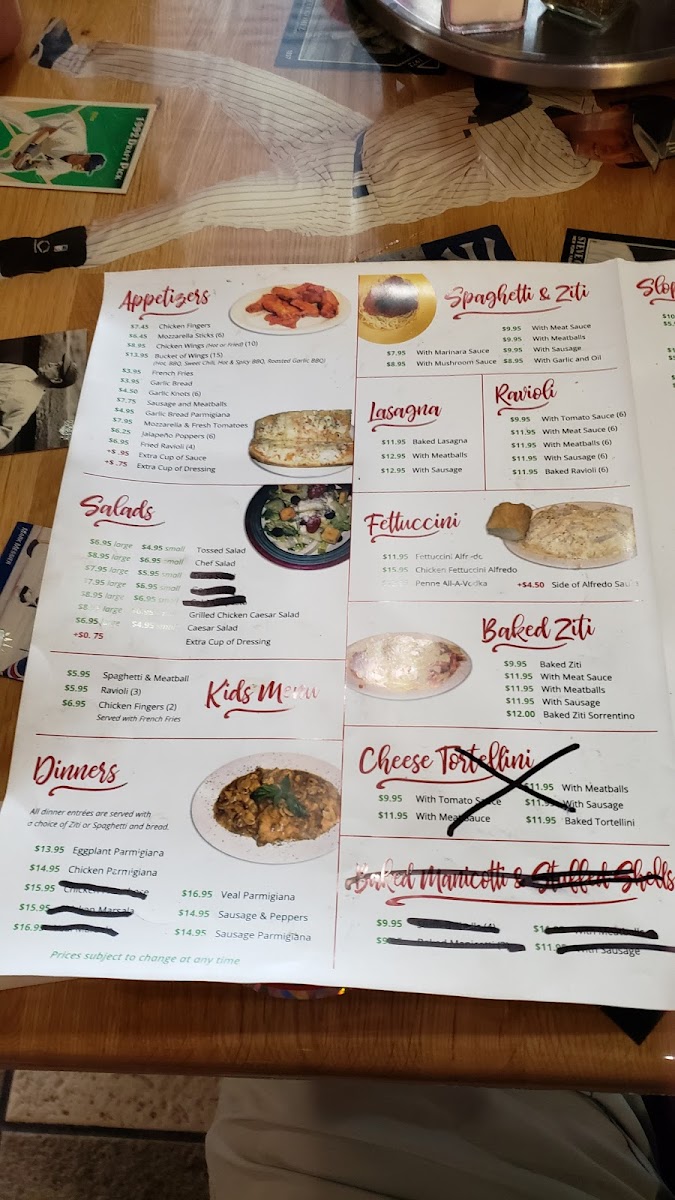 1992 Draft Pick
Appetizers
$7.45 Chicken Fingers
$6.45 Mozzarella Sticks (6)
$8.95 Chicken Wings (Hot or Fried) (10)
$13.95 Bucket of Wings (15)
(Hot, BBQ, Sweet Chili, Hot & Spicy BBQ, Roasted Garlic BBQ)
$3.95 French Fries
$3.95 Garlic Bread
$4.50 Garlic Knots (6)
$7.75 Sausage and Meatballs
$4.95 Garlic Bread Parmigiana
$7.95 Mozzarella & Fresh Tomatoes
$6.25 Jalapeño Poppers (6)
$6.95 Fried Ravioli (4)
+$.95 Extra Cup of Sauce
+$.75 Extra Cup of Dressing
Salads
$6.95 large $4.95 small Tossed Salad
$8.95 large $6.95 small Chef Salad
$7.95 large $5.95 small
$7.95 large $6.95 small
$8.95 large $6.95 small
Grilled Chicken Caesar Salad
$6.95 Caesar Salad
+$0.75 Extra Cup of Dressing
Kids Menu
$5.95 Spaghetti & Meatball
$5.95 Ravioli (3)
$6.95 Chicken Fingers (2)
Served with French Fries
Dinners
All dinner entrées are served with
a choice of Ziti or Spaghetti and bread.
$13.95 Eggplant Parmigiana
$14.95 Chicken Parmigiana
$15.95
$15.95 Marsala
$16.95
$16.95 Veal Parmigiana
$14.95 Sausage & Peppers
$14.95 Sausage Parmigiana
Prices subject to change at any time
Spaghetti & Ziti
$7.95 With Marinara Sauce
$8.95 With Mushroom Sauce
$9.95 With Meat Sauce
$9.95 With Meatballs
$9.95 With Sausage
$8.95 With Garlic and Oil
Lasagna
$11.95 Baked Lasagna
$12.95 With Meatballs
$12.95 With Sausage
Ravioli
$9.95 With Tomato Sauce (6)
$11.95 With Meat Sauce (6)
$11.95 With Meatballs (6)
$11.95 With Sausage (6)
$11.95 Baked Ravioli (6)
Fettuccini
$11.95 Fettuccini Alfredo
$15.95 Chicken Fettuccini Alfredo
Penne All-A-Vodka
+$4.50 Side of Alfredo
Baked Ziti
$9.95 Baked Ziti
$11.95 With Meat Sauce
$11.95 With Meatballs
$11.95 With Sausage
$12.00 Baked Ziti Sorrentino
Cheese Tortellini
$9.95 With Tomato Sauce
$11.95 With Meat Sauce
$11.95 With Meatballs
$11.95 With Sausage
$11.95 Baked Tortellini
Baked Manicotti & Stuffed Shells
$9.95
Baked Manicotti
With Meatballs
$11.95 With Sausage